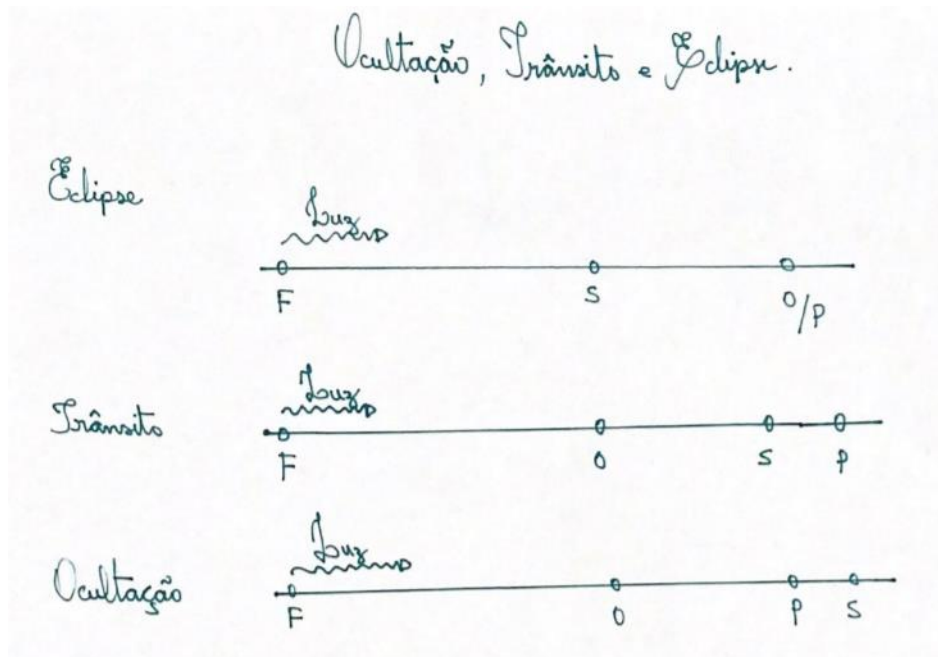 Ocultação, Trânsito e Eclipse.
Eclipse
Luz
F S O/P
Trânsito
Luz
F O S P
Ocultação
Luz
F O P S